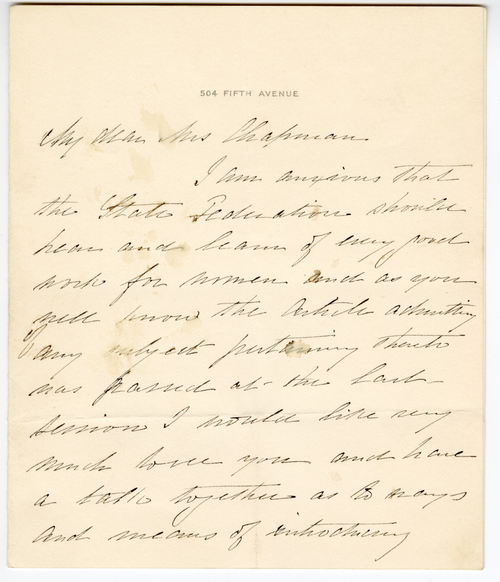 504 FIFTH AVENUE
My dear Mrs Chapman
I am anxious that
the State Federation should
hear and learn of every good
work for women and as you
well know the article admitting
any subject pertaining thereto
was passed at the last
session I would like very
much to see you and have
a talk together as to ways
and means of introducing